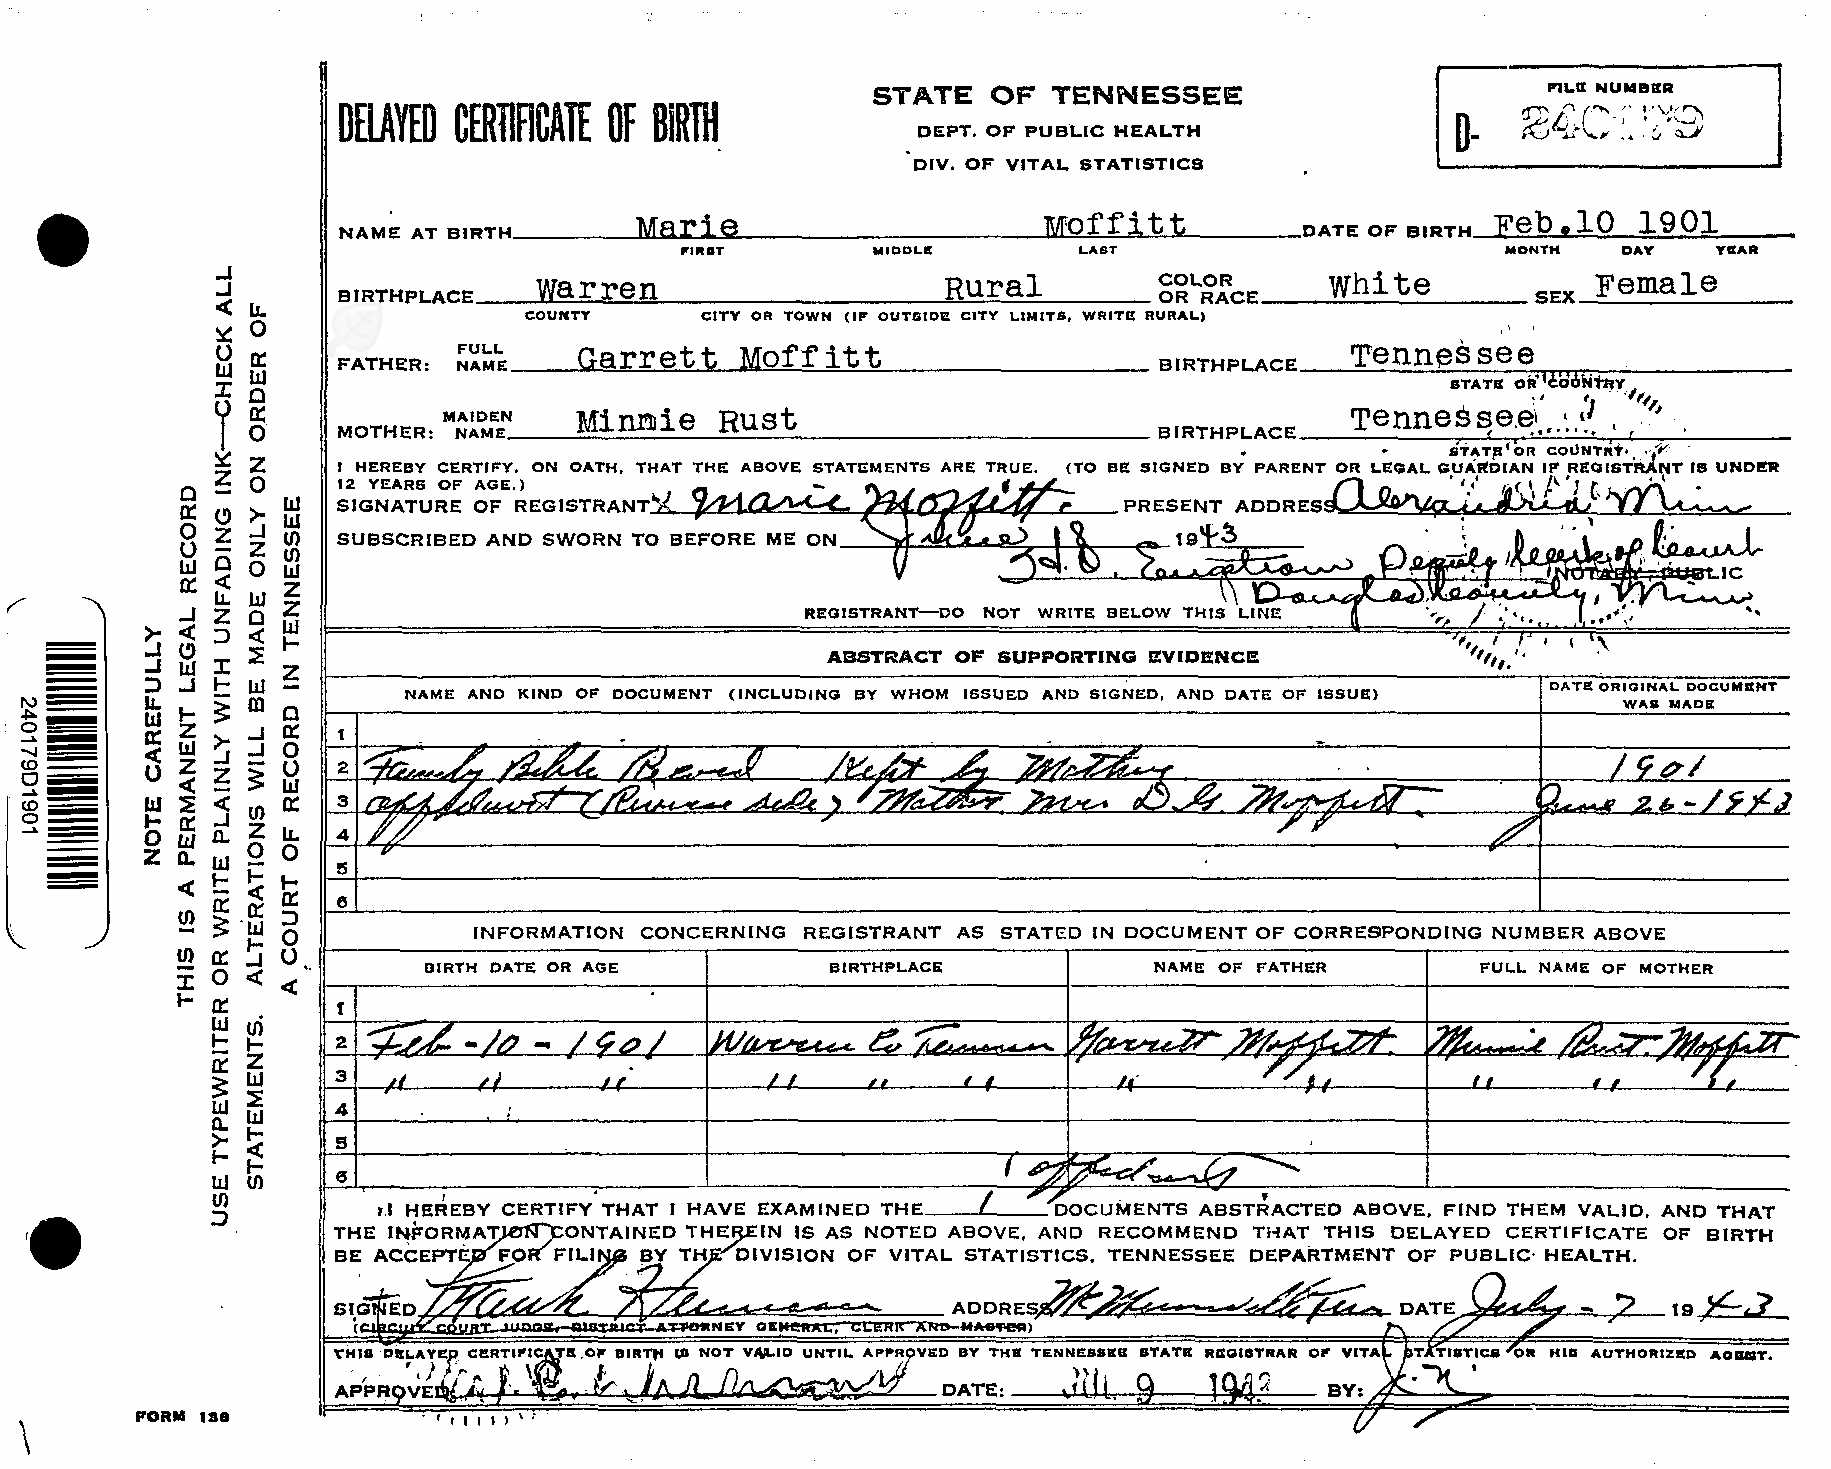 DELAYED CERTIFICATE OF BIRTH
STATE OF TENNESSEE
DEPT. OF PUBLIC HEALTH
DIV. OF VITAL STATISTICS
FILE NUMBER
D- 240179
NAME AT BIRTH Marie Moffitt DATE OF BIRTH Feb.10 1901
FIRST MIDDLE LAST MONTH DAY YEAR
BIRTHPLACE Warren Rural COLOR OR RACE White SEX Female
COUNTY CITY OR TOWN (IF OUTSIDE CITY LIMITS, WRITE RURAL)
FATHER: FULL NAME Garrett Moffitt BIRTHPLACE Tennessee
STATE OR COUNTRY
MOTHER: MAIDEN NAME Minmie Rust BIRTHPLACE Tennessee
STATE OR COUNTRY
I HEREBY CERTIFY, ON OATH, THAT THE ABOVE STATEMENTS ARE TRUE. (TO BE SIGNED BY PARENT OR LEGAL GUARDIAN IF REGISTRANT IS UNDER
12 YEARS OF AGE.)
SIGNATURE OF REGISTRANT X Marie Moffitt. PRESENT ADDRESS Alexandria, Minn
SUBSCRIBED AND SWORN TO BEFORE ME ON June 18 1943
Engstrom Deputy Clerk of Court
NOTARY PUBLIC
Douglas County, Minn.
REGISTRANT—DO NOT WRITE BELOW THIS LINE
ABSTRACT OF SUPPORTING EVIDENCE
NAME AND KIND OF DOCUMENT (INCLUDING BY WHOM ISSUED AND SIGNED, AND DATE OF ISSUE) DATE ORIGINAL DOCUMENT
WAS MADE
1
2 Family Bible Record Kept by Mother 1901
3 affidavit (Reverse side) Mother Mrs. D G. Moffitt. June 26-1943
4
5
6
INFORMATION CONCERNING REGISTRANT AS STATED IN DOCUMENT OF CORRESPONDING NUMBER ABOVE
BIRTH DATE OR AGE BIRTHPLACE NAME OF FATHER FULL NAME OF MOTHER
1
2 Feb-10-1901 Warren Co Tennessee Garrett Moffitt. Minnie Rust Moffitt
3 " " " " " " " " " " "
4
5
6
1 affidavit
I HEREBY CERTIFY THAT I HAVE EXAMINED THE 1 DOCUMENTS ABSTRACTED ABOVE, FIND THEM VALID, AND THAT
THE INFORMATION CONTAINED THEREIN IS AS NOTED ABOVE, AND RECOMMEND THAT THIS DELAYED CERTIFICATE OF BIRTH
BE ACCEPTED FOR FILING BY THE DIVISION OF VITAL STATISTICS, TENNESSEE DEPARTMENT OF PUBLIC HEALTH.
SIGNED Frank ADDRESS McMinnville Tenn DATE July - 7 1943
(CIRCUIT COURT JUDGE, DISTRICT ATTORNEY GENERAL, CLERK AND MASTER)
THIS DELAYED CERTIFICATE OF BIRTH IS NOT VALID UNTIL APPROVED BY THE TENNESSEE STATE REGISTRAR OF VITAL STATISTICS OR HIS AUTHORIZED AGENT.
APPROVED DATE: JUL 9 1943 BY: J.N.
FORM 136
NOTE CAREFULLY
THIS IS A PERMANENT LEGAL RECORD
USE TYPEWRITER OR WRITE PLAINLY WITH UNFADING INK—CHECK ALL
STATEMENTS. ALTERATIONS WILL BE MADE ONLY ON ORDER OF
A COURT OF RECORD IN TENNESSEE
240179D1901